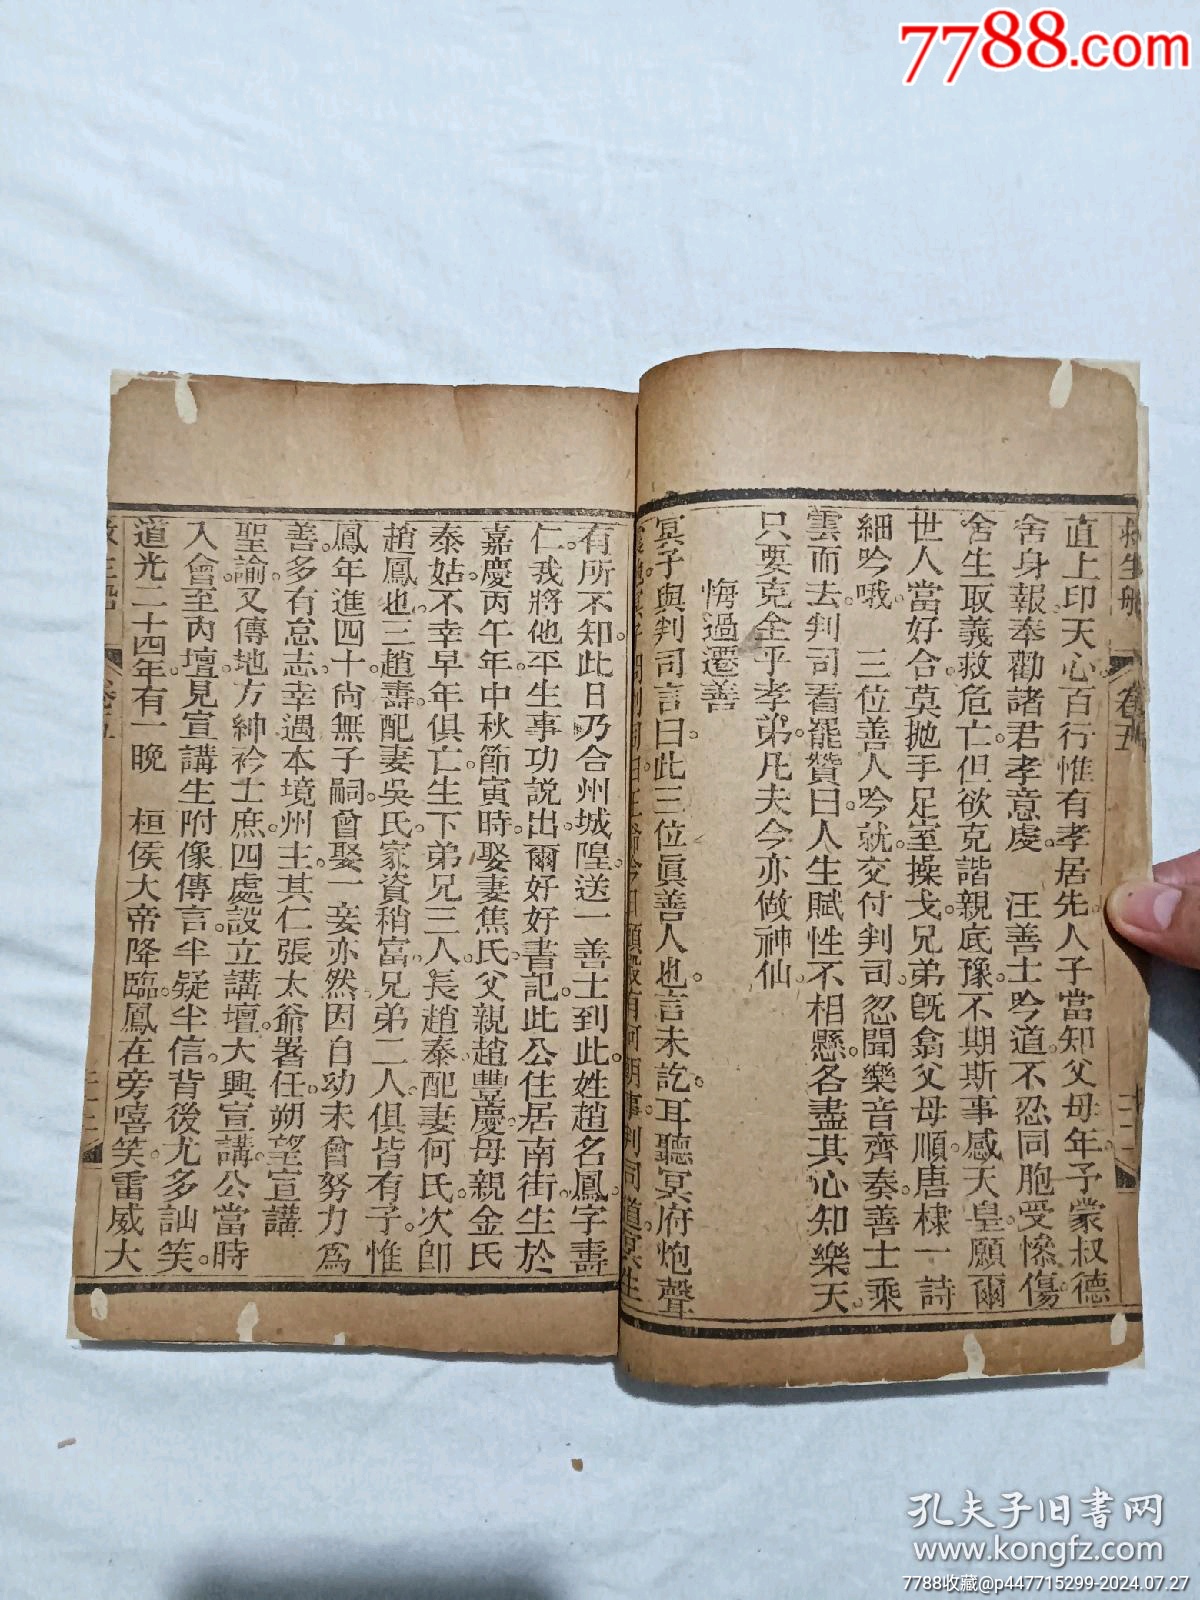 7788.com
救生船 卷五
直上印天心百行惟有孝居先人子當知父母年予蒙叔德
舍身報奉勸諸君孝意虔。 汪善士吟道不忍同胞受慘傷
舍生取義救危亡但欲克諧親底豫不期斯事感天皇願爾
世人當好合莫抛手足室操戈兄弟既翕父母順唐棣一詩
細吟哦 三位善人吟就交付判司忽聞樂音齊奏善士乘
雲而去判司看罷贊曰人生賦性不相懸各盡其心知樂天
只要克全乎孝弟凡夫今亦做神仙
悔過遷善
冥子與判司言曰此三位眞善人也言未訖耳聽冥府炮聲
有所不知此日乃合州城隍送一善士到此姓趙名鳳字壽
仁我將他平生事功説出爾好好書記此公住居南街生於
嘉慶丙午年中秋節寅時娶妻焦氏父親趙豐慶母親金氏
泰姑不幸早年俱亡生下弟兄三人長趙泰配妻何氏次卽
趙鳳也三趙壽配妻吳氏家資稍富兄弟二人俱皆有子惟
鳳年進四十尚無子嗣曾娶一妾亦然因自幼未曾努力爲
善多有怠志幸遇本境州主其仁張太爺署任朔望宣講
聖諭又傳地方紳衿士庶四處設立講壇大興宣講公當時
入會至內壇見宣講生附像傳言半疑半信背後尤多訕笑
道光二十四年有一晚 桓侯大帝降臨鳳在旁嘻笑雷威大
孔夫子旧书网
www.kongfz.com
7788收藏@p447715299-2024.07.27